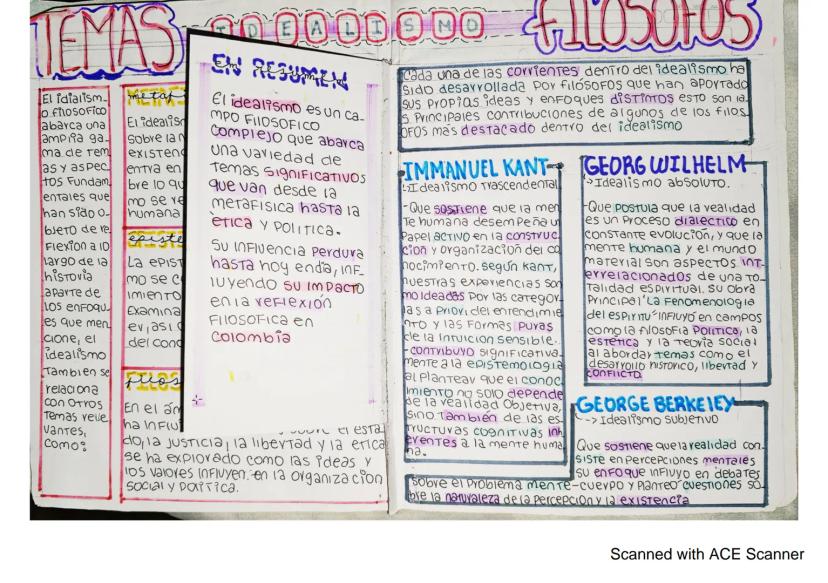 TEMAS
IDEALISMO
FILOSOFOS
El idialism-
o filosofico
abarca una
amplia ga-
ma de tem
as y aspec-
tos fundam
entales que
han sido o-
bjeto de re-
flexion a lo
largo de la
historia
aparte de
los enfoqu-
es que men
cione, el
idealismo
Tambien se
relaciona
con otros
temas rele
vantes,
como:
El idealis
sobre la n
existenc
entra en
bre lo qu
mo se re
humana
La epist
mo se c
imiento
Examina
ev, las i c
del cono
filos
En el ám
ha influ
sobre el esta-
do, la justicia, la libertad y la etica
se ha explorado como las ideas y
los valores influyen en la organizacion
social y politica.
EN RESUMEN
El idealismo es un ca-
mpo filosofico
complejo que abarca
una variedad de
temas significativos
que van desde la
metafisica hasta la
etica y politica.
Su influencia perdura
hasta hoy en dia, inf-
luyendo su impacto
en la reflexión
filosofica en
colombia
Cada una de las corrientes dentro del idealismo ha
sido desarrollada por filósofos que han aportado
sus propias ideas y enfoques distintos esto son la
s principales contribuciones de algunos de los filos
ofos más destacado dentro del idealismo
IMMANUEL KANT
Idealismo trascendental
-Que sostiene que la men
te humana desempeña un
papel activo en la construc-
cion y organizacion del co
nocimiento. según kant,
nuestras experiencias son
moldeadas por las categor-
ias a priori del entendimie
nto y las formas puras
de la intuicion sensible.
-contribuyo significativa-
mente a la epistemologia
al plantear que el conoc-
imiento no solo depende
de la realidad objetiva,
sino también de las es-
tructuras cognitivas inh
erentes a la mente huma
na.
GEORG WILHELM
->Idealismo absoluto.
-Que postula que la realidad
es un proceso dialectico en
constante evolución, y que la
mente humana y el mundo
material son aspectos int-
errelacionados de una to-
talidad espiritual. su obra
principal "La fenomenologia
del espiritu" influyó en campos
como la filosofia politica, la
estética y la teoria social
al abordar temas como el
desarrollo histórico, libertad y
conflicto
GEORGE BERKELEY
->Idealismo subjetivo
Que sostiene que la realidad con-
siste en percepciones mentales
su enfoque influyo en debates
sobre el problema mente-cuerpo y planteó cuestiones so-
bre la naturaleza de la percepcion y la existencia
Scanned with ACE Scanner